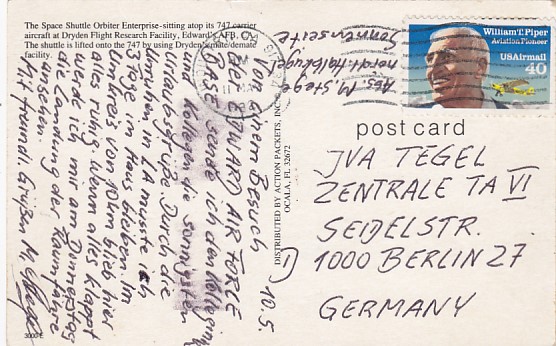 The Space Shuttle Orbiter Enterprise-sitting atop its 747 carrier
aircraft at Dryden Flight Research Facility, Edward's AFB.
The shuttle is lifted onto the 747 by using Dryden's mate/demate
facility.
William T. Piper
Aviation Pioneer
USAirmail
40
Abs. M. Stege
Sonnenseite
post card
JVA TEGEL
ZENTRALE TA VI
SEIDELSTR.
1000 BERLIN 27
GERMANY
DISTRIBUTED BY ACTION PACKETS, INC.
OCALA, FL 32672
10.5.
Von einem Besuch
der EDWARD AIR FORCE
BASE sende ich den Kolleginnen
und Kollegen die sonnigsten
Urlaubsgrüße. Durch die
Unruhen in LA musste ich
3 Tage im Haus bleiben. Im
Umkreis von 20 km blieb hier
alles ruhig. Wenn alles klappt
werde ich mir am Donnerstag
die Landung der Raumfähre
ansehen.
Mit freundl. Grüßen M. Stege
3000-E